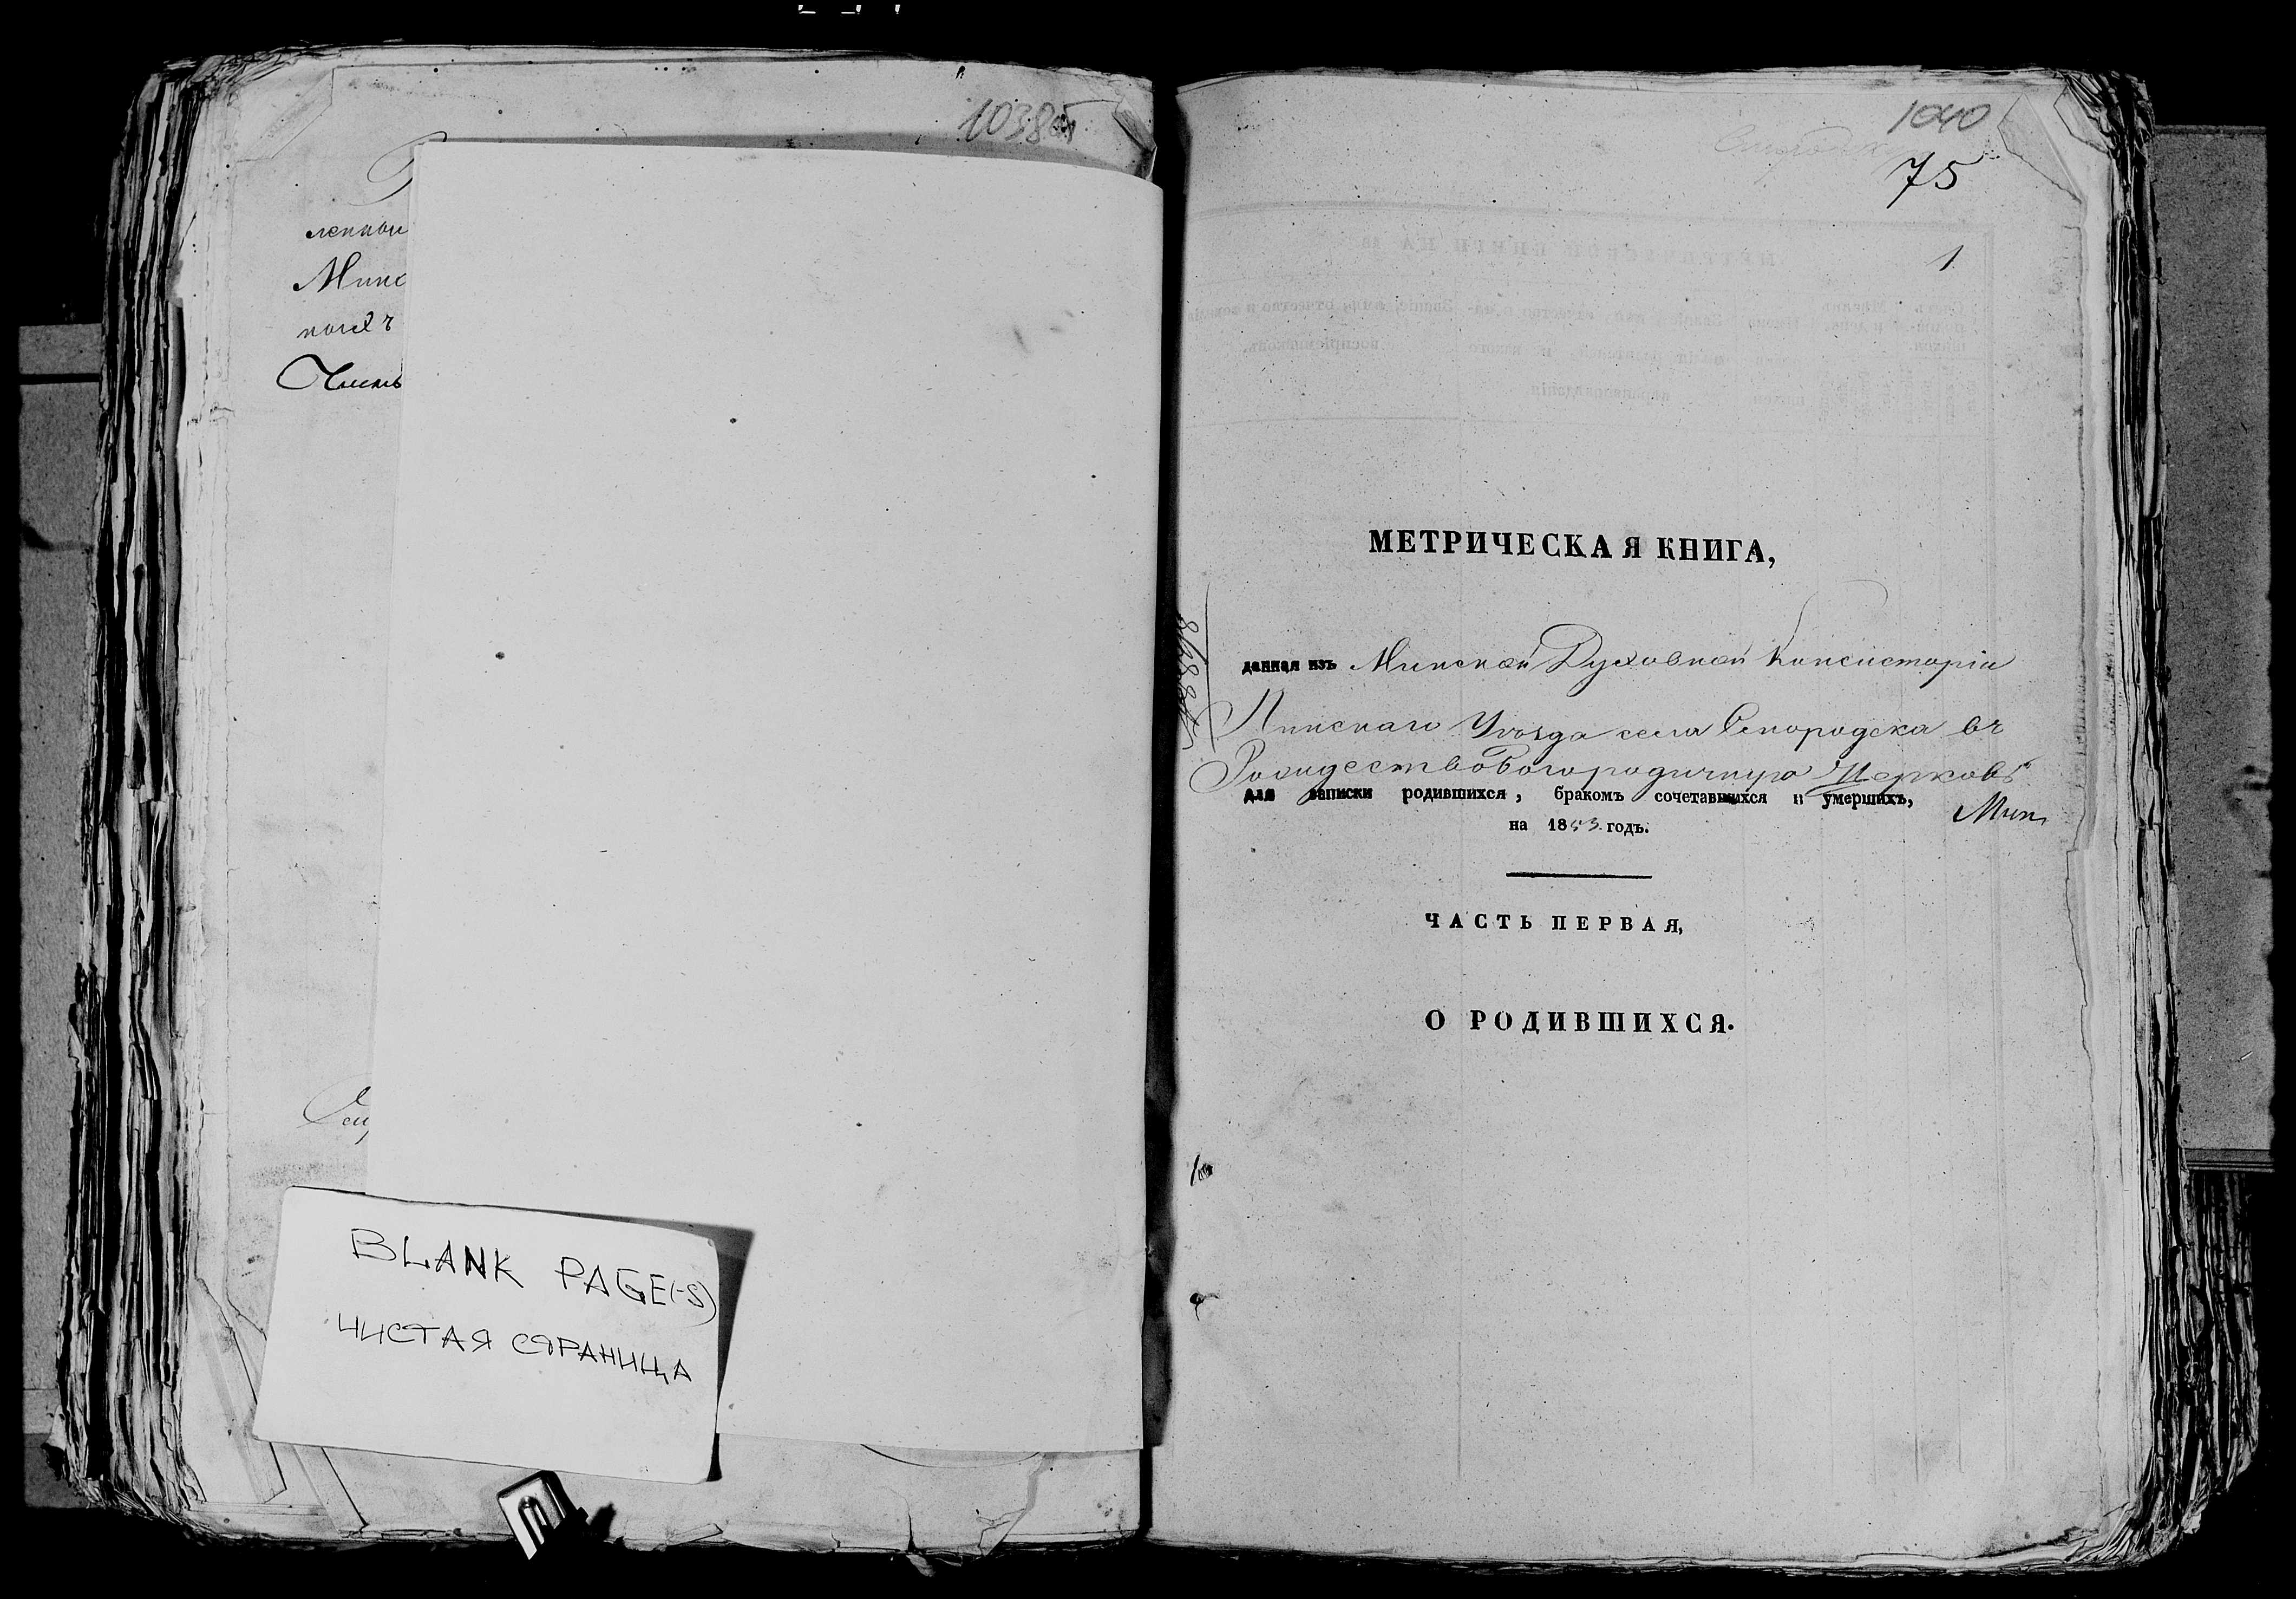 1038об
ленной
Минс
нихъ
BLANK PAGE(-S)
ЧИСТАЯ СТРАНИЦА
1040
75
1
МЕТРИЧЕСКАЯ КНИГА,
данная изъ Минской Духовной Консисторіи
Пинскаго Уѣзда села Споровска въ
Рождествобогородичную Церковь
для записки родившихся, бракомъ сочетавшихся и умершихъ,
Мин
на 1853 годъ.
ЧАСТЬ ПЕРВАЯ,
О РОДИВШИХСЯ.